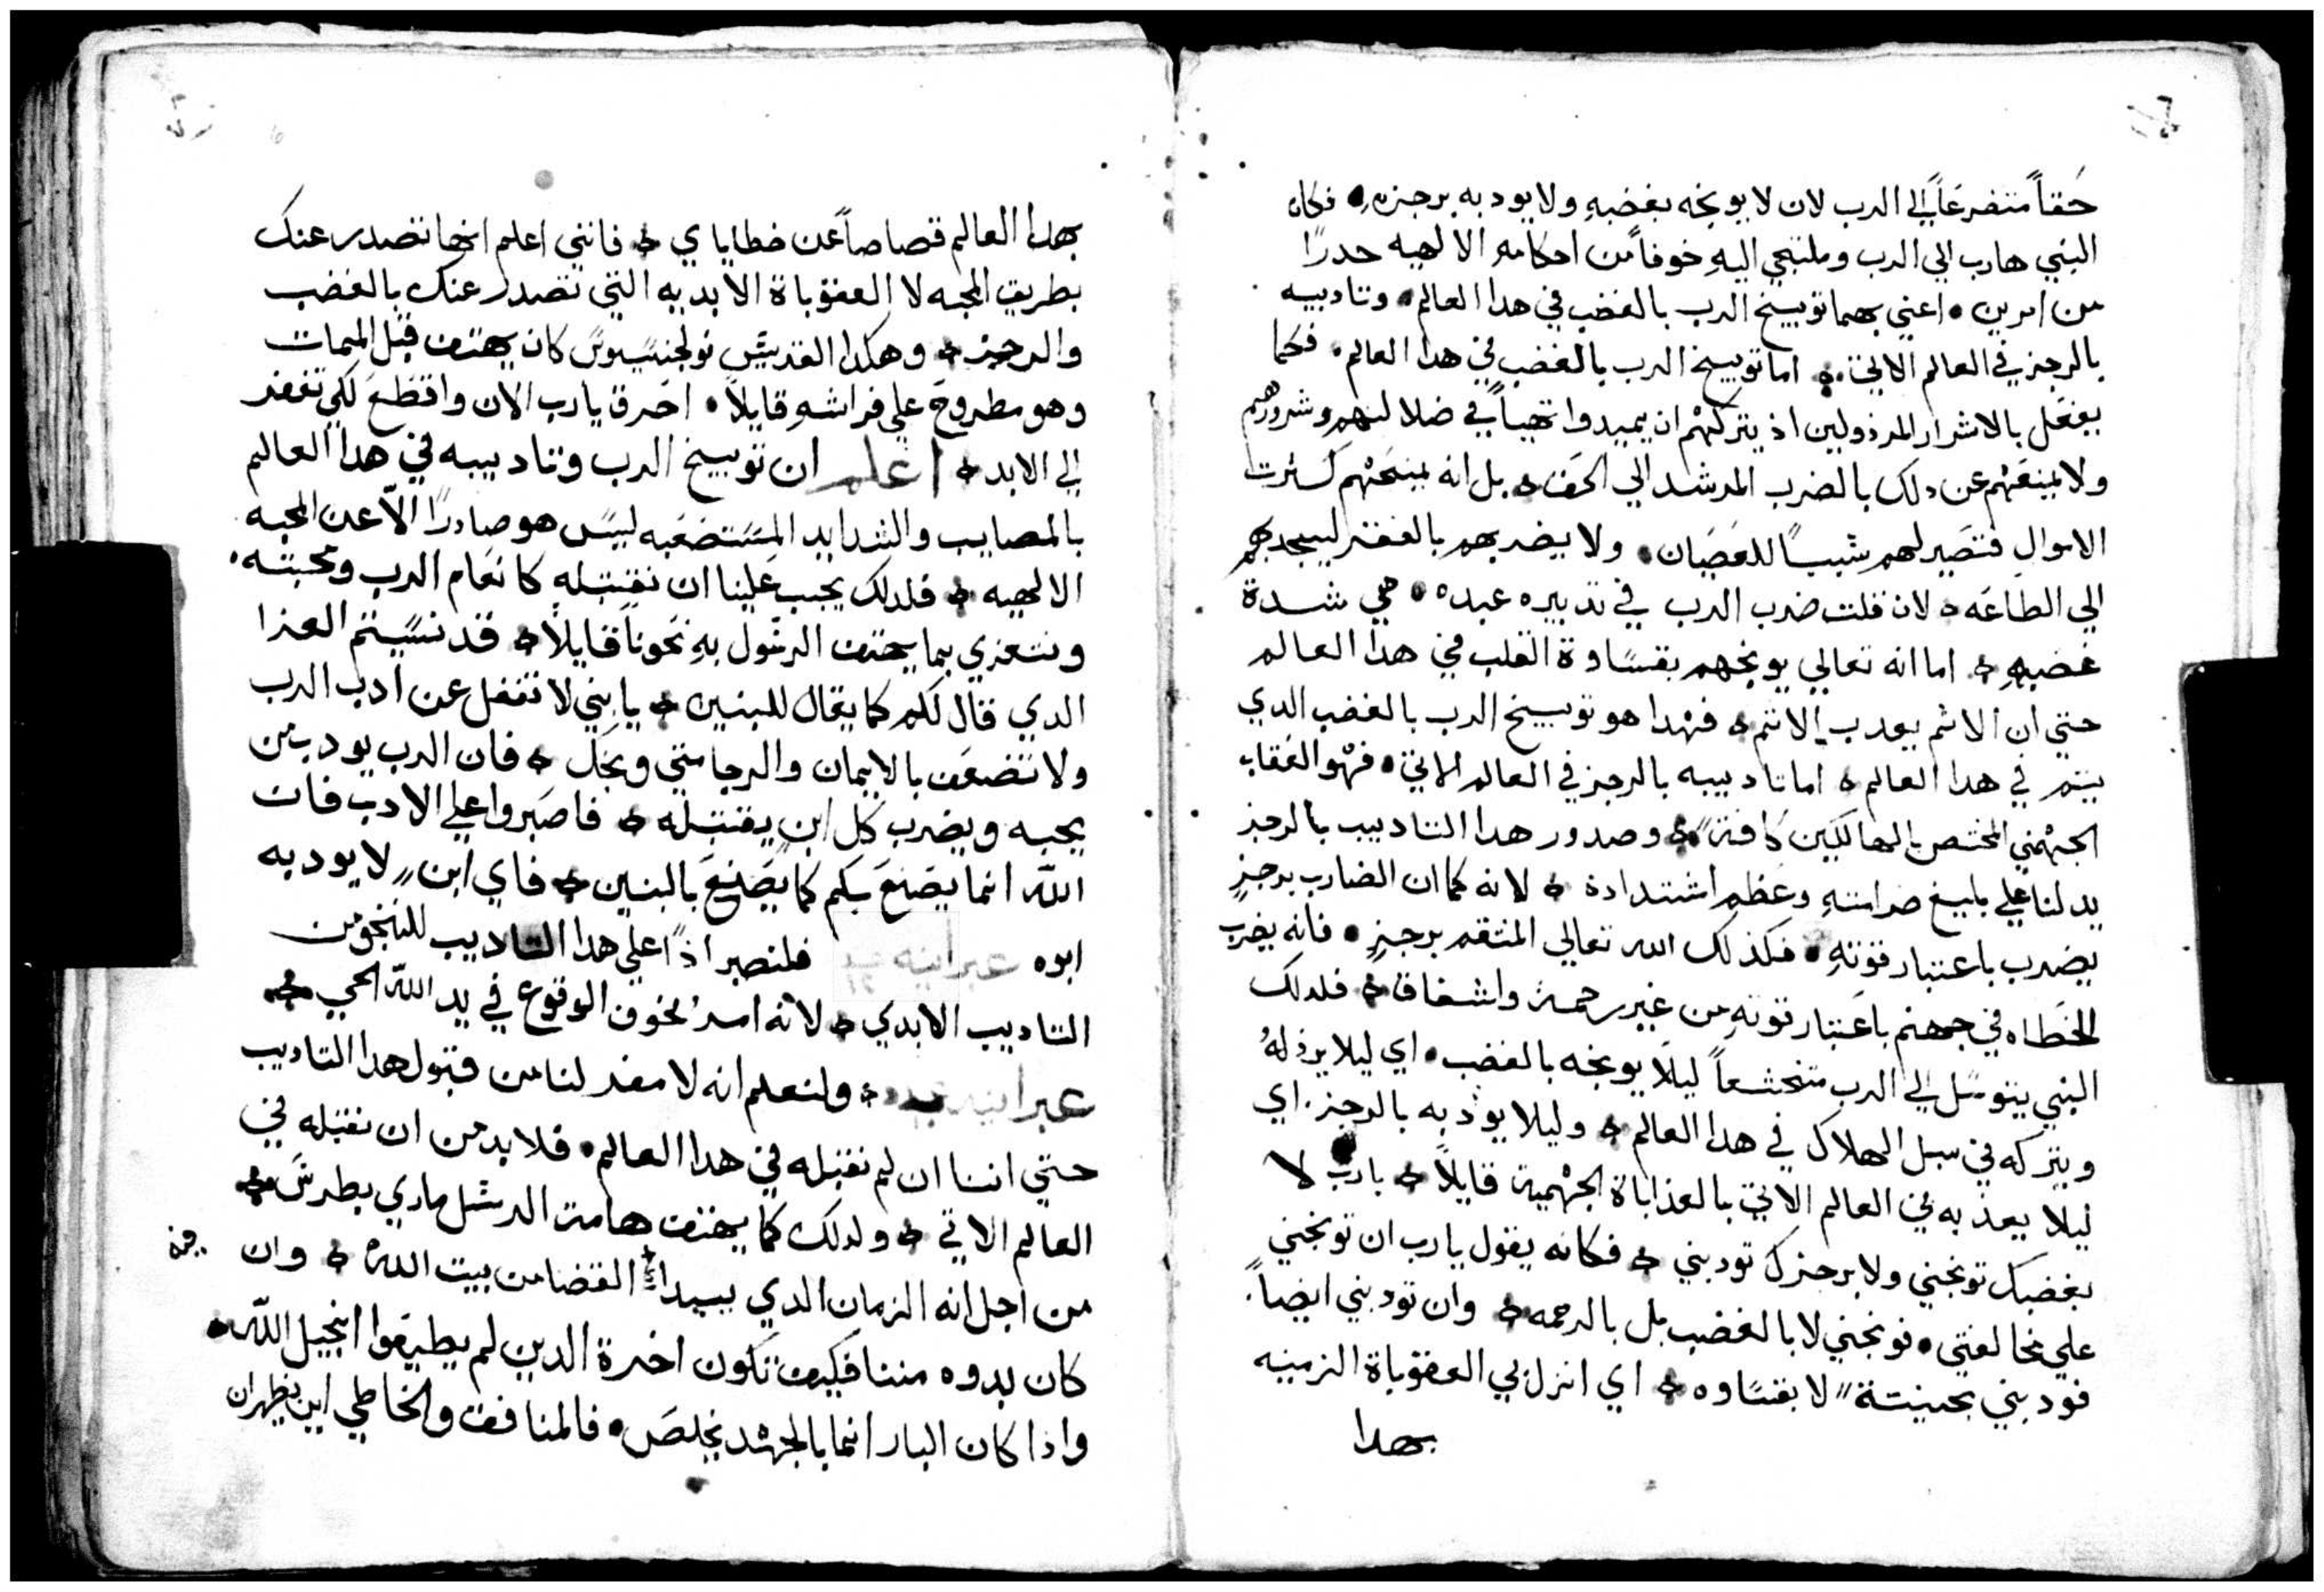 حقاً متضرعاً الي الرب لان لا يوبخه بغضبهِ ولا يودبه برجزهِ • فكان
النبي هارب الي الرب وملتجي اليهِ خوفاً من احكامه الالهيه حدرًا
من امرين • اعني بهما توبيخ الرب بالغضب في هدا العالم • وتاديبه
بالرجز في العالم الاتي • اما توبيخ الرب بالغضب في هدا العالم • فكما
يفعل بالاشرار المرذولين اذ يتركهم ان يميدوا تيهاً في ضلالتهم وشرورهم
ولا يمنعهم عن دلك بالضرب المرشد الي الحق • بل انه يمنحهم كسرت
الاموال فتصير لهم سبباً للعصيان • ولا يضربهم بالفقر ليجدبهم
الي الطاعه • لان قلت ضرب الرب في تدبيره عبده • هي شدة
غضبهِ • اما انه تعالي يوبخهم بقساوة القلب في هدا العالم
حتي ان الاثم يعدب الاثم • فهدا هو توبيخ الرب بالغضب الدي
يتم في هدا العالم • اما تاديبه بالرجز في العالم الاتي • فهو العقاب
الجهنمي المختص بالهالكين كافةً • وصدور هدا التاديب بالرجز
يدلنا علي بليغ صرامتهِ وعظم اشتداده • لانه كما ان الضارب برجزٍ
يضرب باعتبار قوتهِ • فكذلك الله تعالي المنتقم برجزٍ • فانه يضرب
الخطاه في جهنم باعتبار قوتهِ من غير رحمة واشفاق • فلدلك
النبي يتوسل الي الرب متخشعاً ليلا يوبخه بالغضب • اي ليلا يرذلهُ
ويتركه في سبل الهلاك في هدا العالم • وليلا يودبه بالرجز • اي
ليلا يعذبه في العالم الاتي بالعذاباة الجهنمية قايلاً • يارب لا
بغضبك توبخني ولا برجزك تودبني • فكانه يقول يارب ان توبخني
علي مخالفتي • توبخني لا بالغضب بل بالرحمه • وان تودبني ايضاً •
فودبني بحنيتة لا بقساوه • اي انزل بي العقوباة الزمنيه
بهدا
بهدا العالم قصاصاً عن خطاياي • فانني اعلم انها تصدر عنك
بطريق المحبه لا العقوباة الابديه التي تصدر عنك بالغضب
والرجز • وهكدا القديس كان يهتف قبل الممات
وهو مطروح علي فراشهِ قايلاً • احرق يارب الان واقطع لكي تغفر
الي الابد • اعلم ان توبيخ الرب وتاديبه في هدا العالم
بالمصايب والشدايد المستصعبه ليس هو صادرًا الاّ عن المحبه
الالهيه • فلدلك يجب علينا ان نقتبله كانعام الرب ومحبته •
ونتعزي بما يهتف الرسول بهِ نحونا قايلاً • قد نسيتم العزا
الدي قال لكم كما يقال للبنين • يابني لا تغفل عن ادب الرب
ولا تضعف بالايمان والرجا متي وبخك • فان الرب يودب من
يحبه ويضرب كل ابن يقتبله • فاصبروا علي الادب فان
اللّه انما يصنع بكم كما يصنع بالبنين • فاي ابن لا يودبه
ابوه عبرانيه ١٢ فلنصبر اذًا علي هدا التاديب لننجو من
التاديب الابدي • لانه امرٌ مخوف الوقوع في يد اللّه الحي •
عبرانيه • ولنعلم انه لا مفر لنا من قبول هدا التاديب
حتي اننا ان لم نقتبله في هدا العالم • فلا بد من ان نقتبله في
العالم الاتي • ولدلك كما يهتف هامة الرسل ماري بطرس •
من اجل انه الزمان الدي يبدا القضا من بيت اللّه • وان
كان بدوه مننا فكيف تكون اخرة الدين لم يطيعوا انجيل اللّه •
واذا كان البار انما بالجهد يخلص • فالمنافق والخاطي اين يظهران